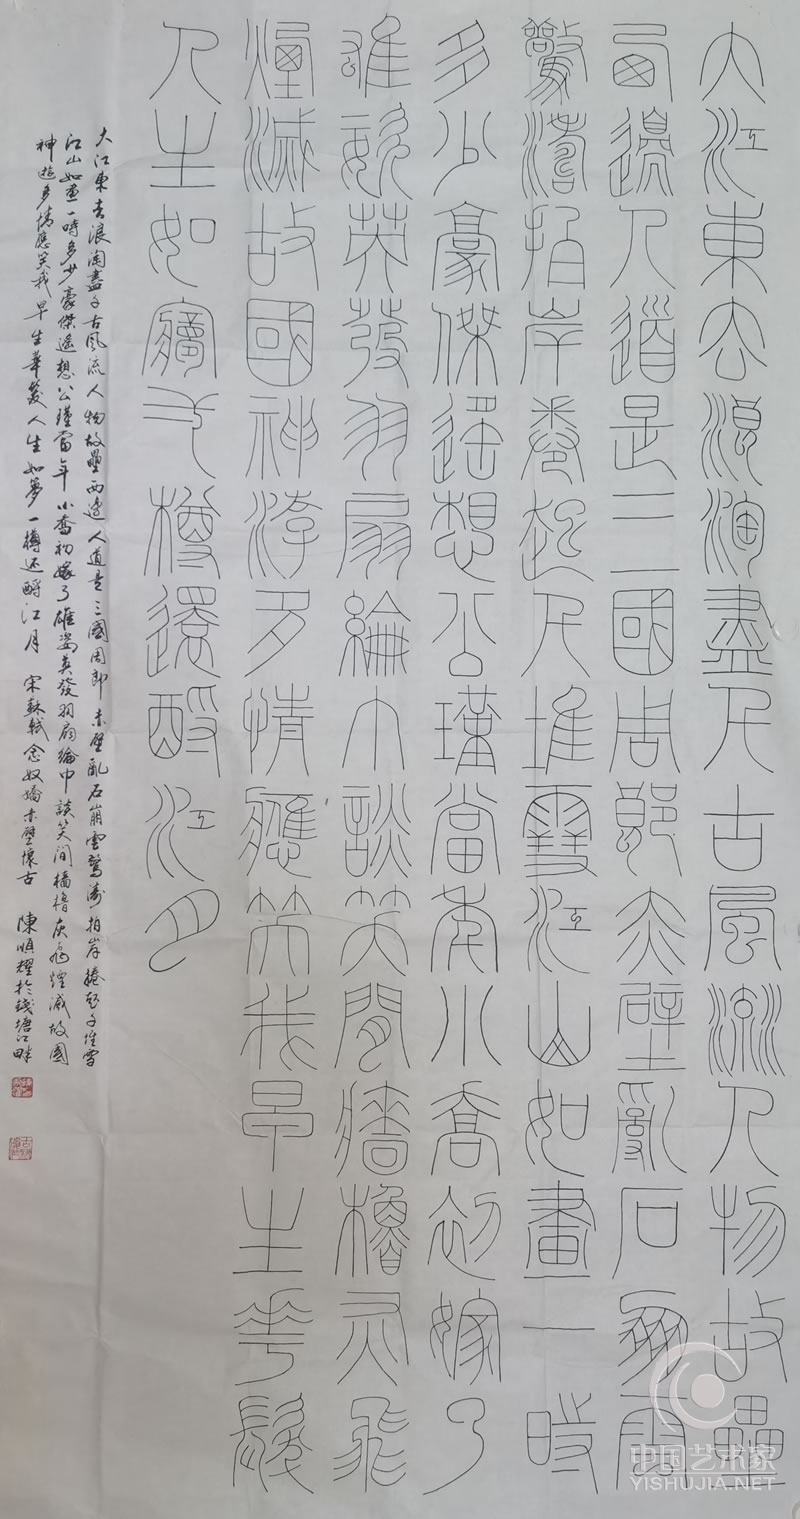 大江東去浪淘盡千古風流人物故壘
西邊人道是三國周郎赤壁亂石崩雲
驚濤拍岸卷起千堆雪江山如畫一時
多少豪傑遥想公瑾當年小喬初嫁了
雄姿英發羽扇綸巾談笑間檣櫓灰飛
煙滅故國神游多情應笑我早生華髮
人生如夢一樽還酹江月
大江東去浪淘盡千古風流人物故壘西邊人道是三國周郎赤壁亂石崩雲驚濤拍岸捲起千堆雪
江山如畫一時多少豪傑遥想公瑾當年小喬初嫁了雄姿英發羽扇綸巾談笑間檣櫓灰飛煙滅故國
神遊多情應笑我早生華髮人生如夢一樽还酹江月 宋蘇軾念奴嬌赤壁懷古 陳順耀於錢塘江畔
中国艺术家
YISHUJIA.NET